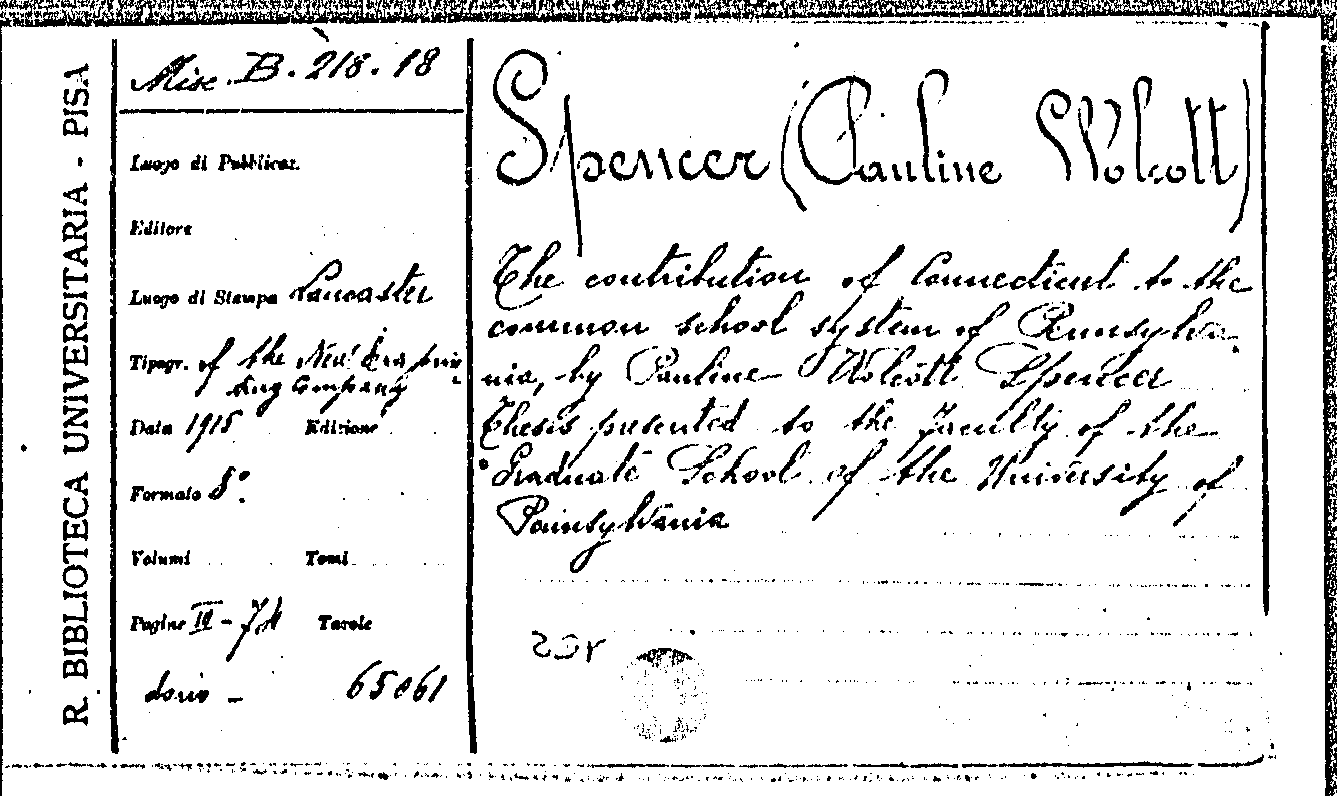 R. BIBLIOTECA UNIVERSITARIA - PISA
Misc. B. 218. 18
Luogo di Pubblicaz.
Editore
Luogo di Stampa Lancaster
Tipogr. of the New Era prin-
ting Company
Data 1915 Edizione
Formato 8°.
Volumi Tomi
Pagine III - 74 Tavole
dono - 65061
Spencer (Pauline Wolcott)
The contribution of Connecticut to the
common school system of Pennsylva-
nia, by Pauline Wolcott Spencer
Thesis presented to the Faculty of the
Graduate School of the University of
Pennsylvania